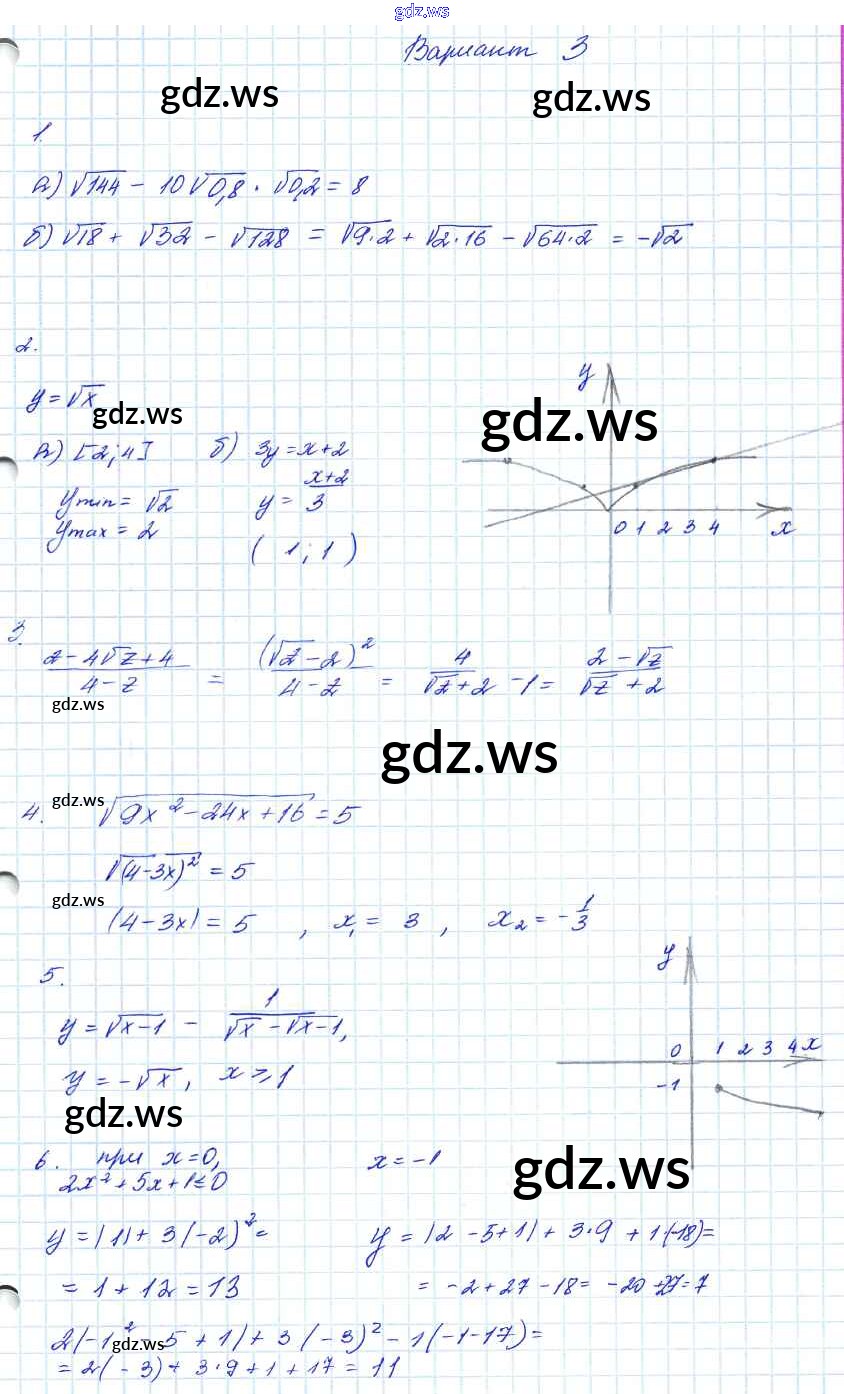 gdz.ws
Вариант 3
gdz.ws gdz.ws
1.
а) √144 - 10√0,8 · √0,2 = 8
б) √18 + √32 - √128 = √9·2 + √2·16 - √64·2 = -√2
2.
y = √x
gdz.ws
а) [2;4] б) 3y = x+2
ymin = √2 y = x+2/3
ymax = 2
( 1 ; 1 )
y
gdz.ws
0 1 2 3 4 x
3.
z - 4√z + 4 / 4 - z = (√z - 2)² / 4 - z = 4 / √z + 2 - 1 = 2 - √z / √z + 2
gdz.ws
gdz.ws
4. √9x² - 24x + 16 = 5
gdz.ws
√(4-3x)² = 5
gdz.ws
|4-3x| = 5 , x₁ = 3 , x₂ = -1/3
5.
y = √x-1 - 1 / √x - √x-1,
y = -√x, x ⩾ 1
gdz.ws
y
0 1 2 3 4 x
-1
6. при x=0, x = -1
2x² + 5x + 1 ≤ 0
gdz.ws
y = |1| + 3(-2)² =
= 1 + 12 = 13
y = |2 - 5 + 1| + 3·9 + 1·(-18) =
= -2 + 27 - 18 = -20 + 27 = 7
2(-1² - 5 + 1) + 3(-3)² - 1(-1-17) =
gdz.ws
= 2(-3) + 3·9 + 1 + 17 = 11